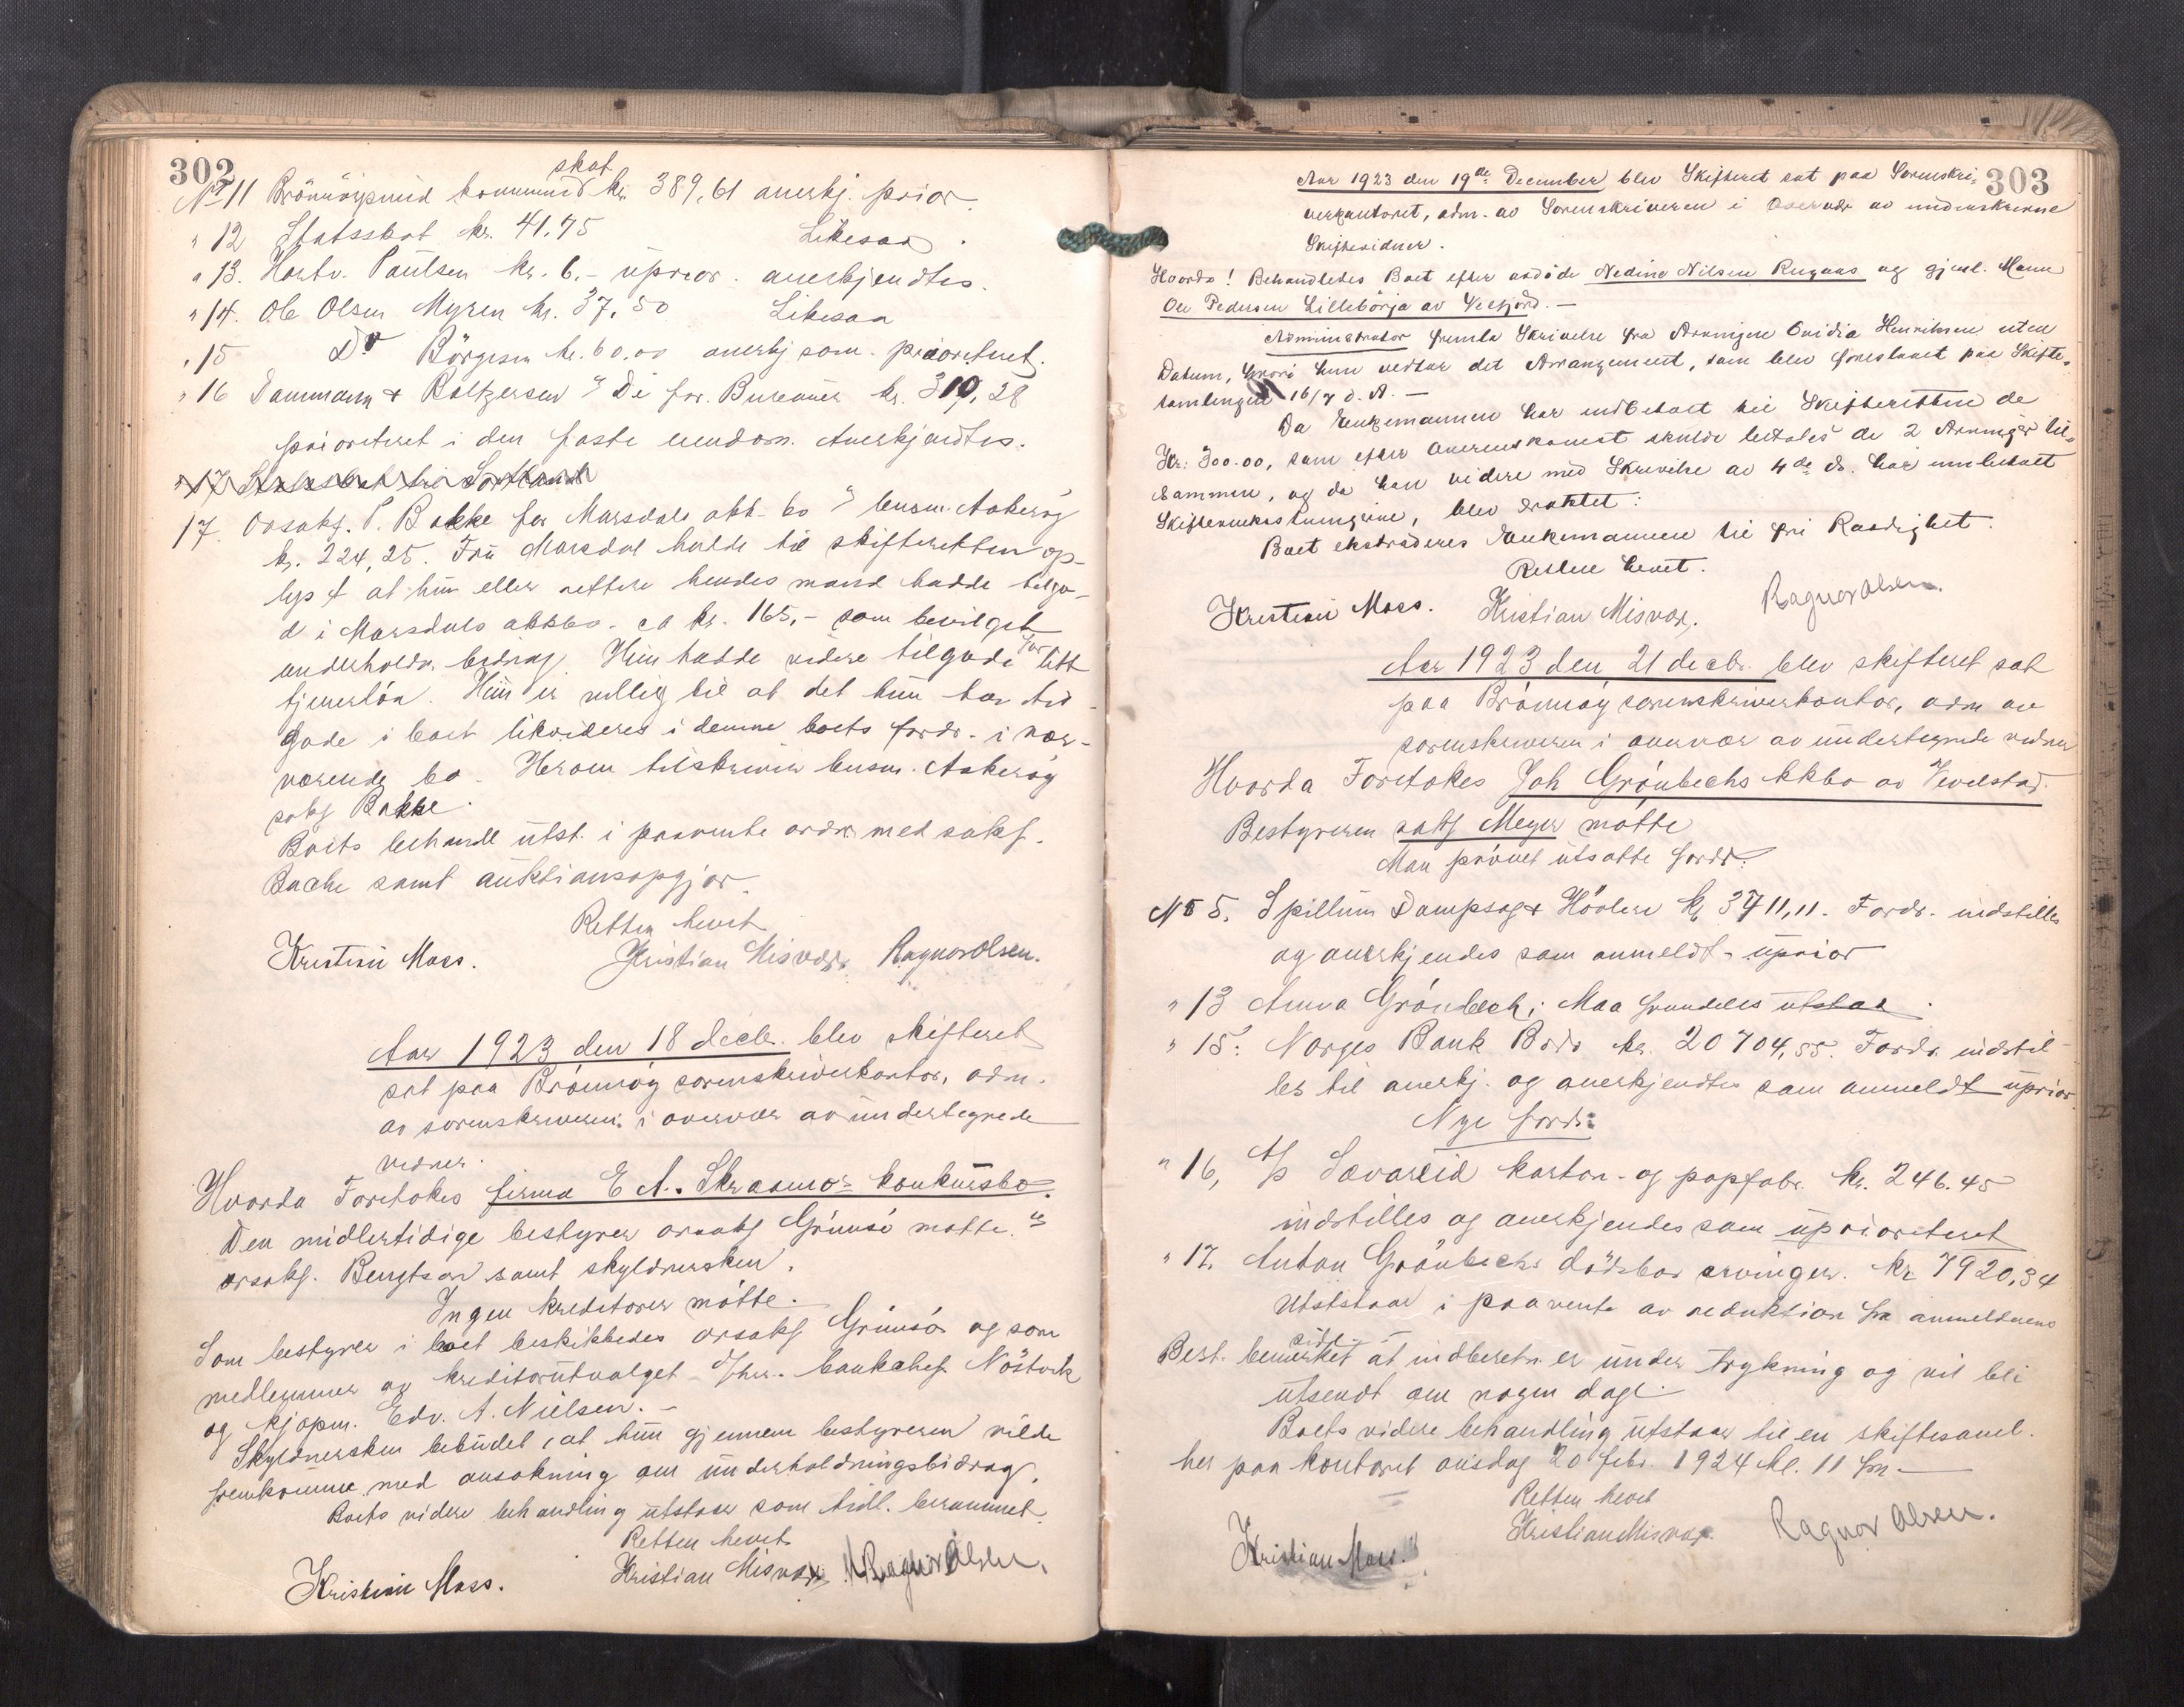 302
skat
No 11 Brönnöysund kommune kr. 389,61 anerkj. prior.
" 12 Statsskat kr. 41.75 Likesaa.
" 13. Hartv. Paulsen kr. 6.- uprior. anerkjendtes.
" 14. Ole Olsen Myren kr. 37,50 Likesaa
" 15 Dr Börgesen kr. 60.00 anerkj som prioriteret.
" 16 Dammann & Roltzersen kr. 310,28
prioriteret i den faste eiendom. Anerkjendtes.
17 Statsskat
17. Orsakf. P. Bakke for Marsdals akk. bo lensm. Aakerøy
kr. 224,25. Fru Marsdal hadde til skifteretten op-
lyst at hun eller rettere hendes mand hadde tilgo-
de i Marsdals akkbo. ca kr. 165,- som bevilget
underholdn. bidrag. Hun hadde videre tilgode for litt
tjenerløn. Hun er villig til at det hun har til-
gode i boet likvideres i denne boets fordr. i nær-
værende bo. Herom tilskrives lensm. Aakerøy
sakf Bakke.
Boets behandl utst. i paavente ordn. med sakf.
Bache samt auktionsopgjør.
Retten hevet
Kristian Moss. Kristian Misvær. Ragnar Olsen.
Aar 1923 den 18 decbr. blev skifteret
sat paa Brönnöy sorenskriverkontor, adm.
av sorenskriveren i overvær av undertegnede
vidner.
Hvorda Foretokes firma E A. Skraamos konkursbo.
Den midlertidige bestyrer orsakf Grünsö møtte.
orsakf. Bengtson samt skyldnersken.
Ingen kreditorer møtte.
Som bestyrer i boet beskikkedes orsakf Grünsö og som
medlemmer av kreditorutvalget d'hrr. bankchef Nöstvik
og kjøpm. Edv. A. Nielsen. -
Skyldnersken bebudet, at hun gjennem bestyreren vilde
fremkomme med ansøkning om underholdningsbidrag.
Boets videre behandling utstaar som tidl. berammet.
Retten hevet
Kristian Moss. Kristian Misvær Ragnar Olsen.
303
Aar 1923 den 19de December blev Skifteret sat paa Sorenskri-
verkontoret, adm. av Sorenskriveren i Overvær av underskrevne
Skiftevidner.
Hvorda! Behandledes Boet efter avdøde Nedine Nilsen Rugaas og gjenl. Mann
Ole Pedersen Lillebörja av Velfjord. -
Administrator fremla Skrivelse fra Arvingen Ovidia Henriksen uten
Datum, hvori hun vedtar det Arrangement, som blev foreslaaet paa Skifte-
samlingen 16/7 d. A. -
Da Enkemannen har indbetalt til Skifteretten de
Kr. 300.00, som efter Overenskomst skulde betales de 2 Arvinger til-
sammen, og da han videre med Skrivelse av 4de ds. har innbetalt
Skifteomkostningerne, blev sluttet:
Boet ekstraderes Enkemannen til fri Raadighet.
Retten hevet.
Kristian Moss. Kristian Misvær. Ragnar Olsen.
Aar 1923 den 21 decbr. blev skifteret sat
paa Brönnöy sorenskriverkontor, adm av
sorenskriveren i overvær av undertegnede vidner
Hvorda Foretokes Joh Grönbechs kkbo av Vevelstad.
Bestyreren sakf Meyer møtte
Man prøvet utsatte fordr.
No 5. Spillum Dampsag & Høvleri kr 3711,11. Fordr. indstilles
og anerkjendes som anmeldt uprior
" 13 Anna Grönbech; Maa fremdeles utstaa.
" 15. Norges Bank Bodø kr. 20704,55. Fordr. indstil-
les til anerkj. og anerkjendtes som anmeldt uprior.
Nye fordr:
" 16, A/S Sævareid karton- og papfabr. kr. 246.45
indstilles og anerkjendes som uprioriteret
" 17. Anton Grönbechs dödsbos arvinger. kr 7920,34
Utststaar i paavente av reduktion fra anmelderens
side.
Best. bemerket at indberetn. er under trykning og vil bli
utsendt om nogen dage.
Boets videre behandling utstaar til en skiftesaml.
her paa kontoret onsdag 20 febr. 1924 kl. 11 fm.
Retten hevet
Kristian Moss. Kristian Misvær. Ragnar Olsen.